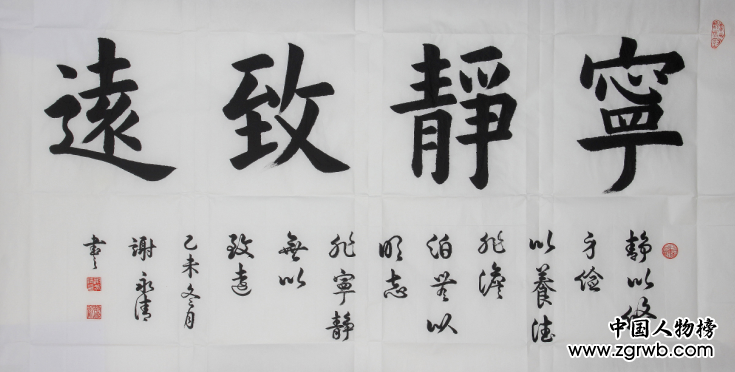 寧靜致遠
靜以修
身儉
以養德
非澹
泊無以
明志
非寧靜
無以
致遠
乙未冬月
謝永清
書
中国人物榜
www.zgrwb.com